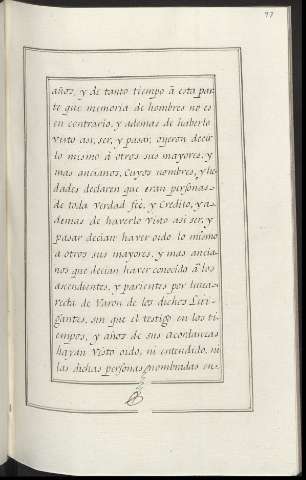 77
años, y de tanto tiempo â esta par-
te que memoria de hombres no es
en contrario, y ademas de haberlo
visto asi, ser, y pasar, oyeron decir
lo mismo â otros sus mayores, y
mas ancianos, cuyos nombres, y he-
dades declaren que eran personas
de toda verdad feê, y Credito, y a-
demas de haverlo visto asi ser, y
pasar decian haver oido lo mismo
a otros sus mayores, y mas ancia-
nos que decian haver conocido â los
ascendientes, y parientes por linea
recta de Varon de los dichos Liti-
gantes, sin que el testigo en los ti-
empos, y años de sus acordanzas
hayan visto oido, ni entendido, ni
las dichas personas nombradas en-